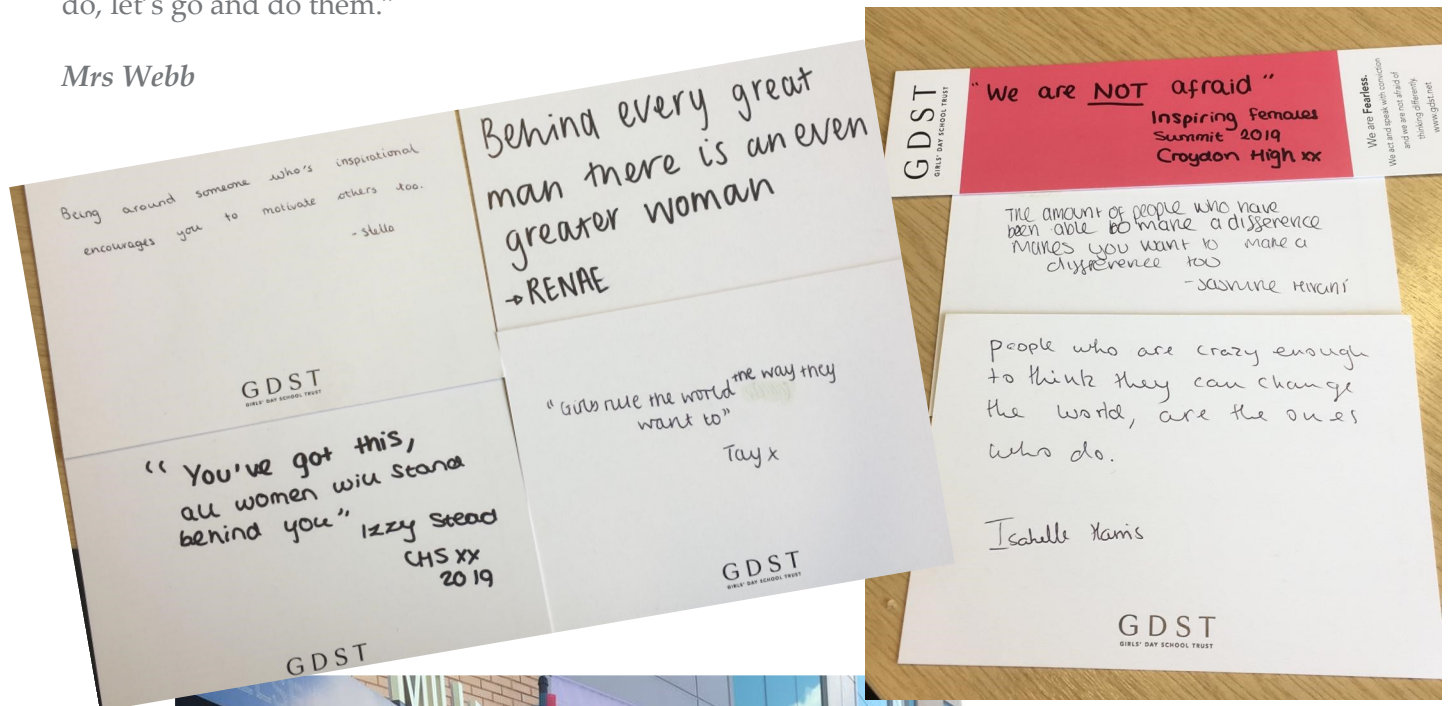 do, let's go and do them."
Mrs Webb
Being around someone who's inspirational
encourages you to motivate others too.
- Stella
GDST
GIRLS' DAY SCHOOL TRUST
Behind every great
man there is an even
greater woman
→RENAE
"You've got this,
all women will stand
behind you"
Izzy Stead
CHS xx
2019
GDST
"Girls rule the world the way they
want to"
Tay x
GDST
GIRLS' DAY SCHOOL TRUST
GDST
GIRLS' DAY SCHOOL TRUST
"We are NOT afraid"
Inspiring Females
Summit 2019
Croydon High xx
We are Fearless.
We act and speak with conviction
and we are not afraid of
thinking differently.
www.gdst.net
The amount of people who have
been able to make a difference
makes you want to make a
difference too
- Jasmine Hirani
people who are crazy enough
to think they can change
the world, are the ones
who do.
Isabelle Harris
GDST
GIRLS' DAY SCHOOL TRUST